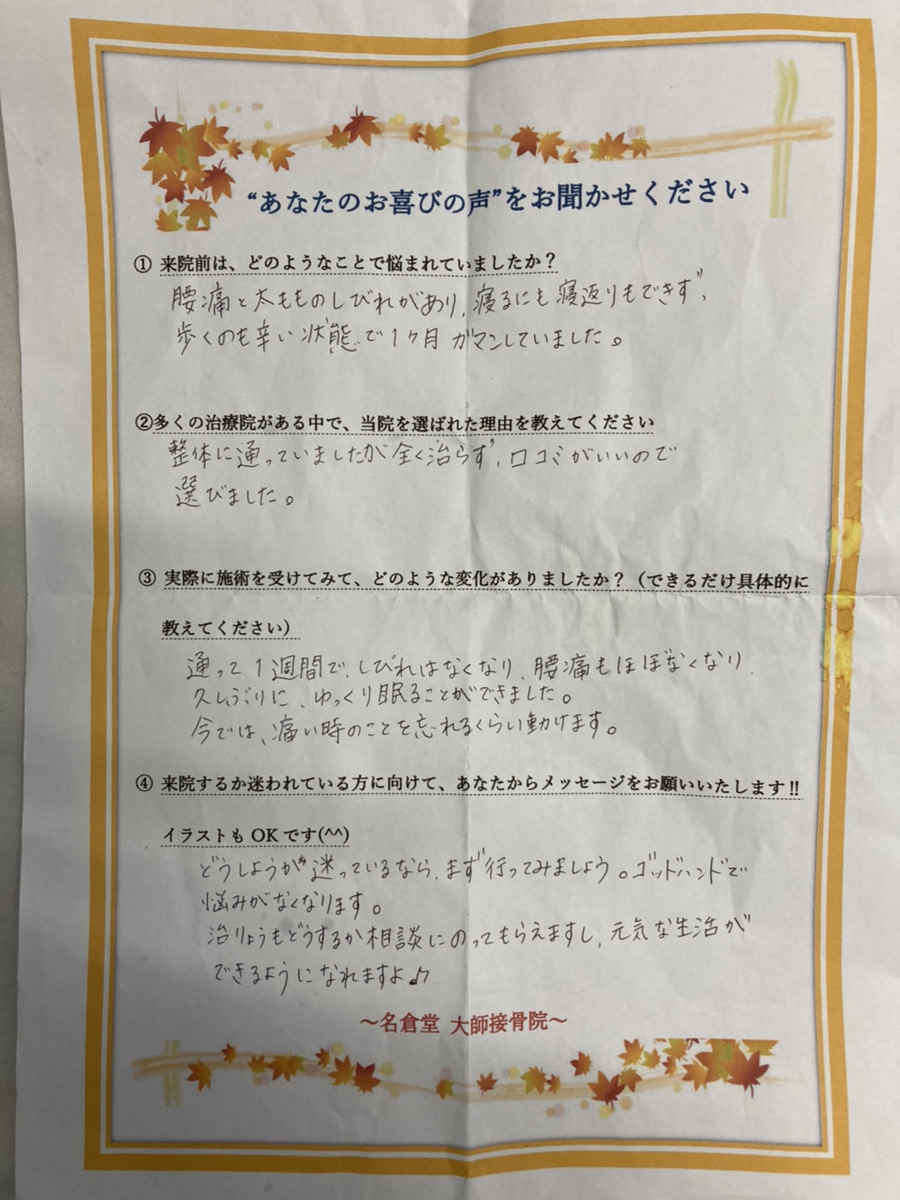 “あなたのお喜びの声”をお聞かせください
① 来院前は、どのようなことで悩まれていましたか？
腰痛と太もものしびれがあり、寝るにも寝返りもできず、
歩くのも辛い状態で1ヶ月ガマンしていました。
②多くの治療院がある中で、当院を選ばれた理由を教えてください
整体に通っていましたが全く治らず、口コミがいいので
選びました。
③ 実際に施術を受けてみて、どのような変化がありましたか？（できるだけ具体的に
教えてください）
通って1週間で、しびれはなくなり、腰痛もほぼなくなり
久しぶりに、ゆっくり眠ることができました。
今では、痛い時のことを忘れるくらい動けます。
④ 来院するか迷われている方に向けて、あなたからメッセージをお願いいたします‼
イラストも OK です(^^)
どうしようか迷っているなら、まず行ってみましょう。ゴッドハンドで
悩みがなくなります。
治りょうもどうするか相談にのってもらえますし、元気な生活が
できるようになれますよ♪
～名倉堂 大師接骨院～